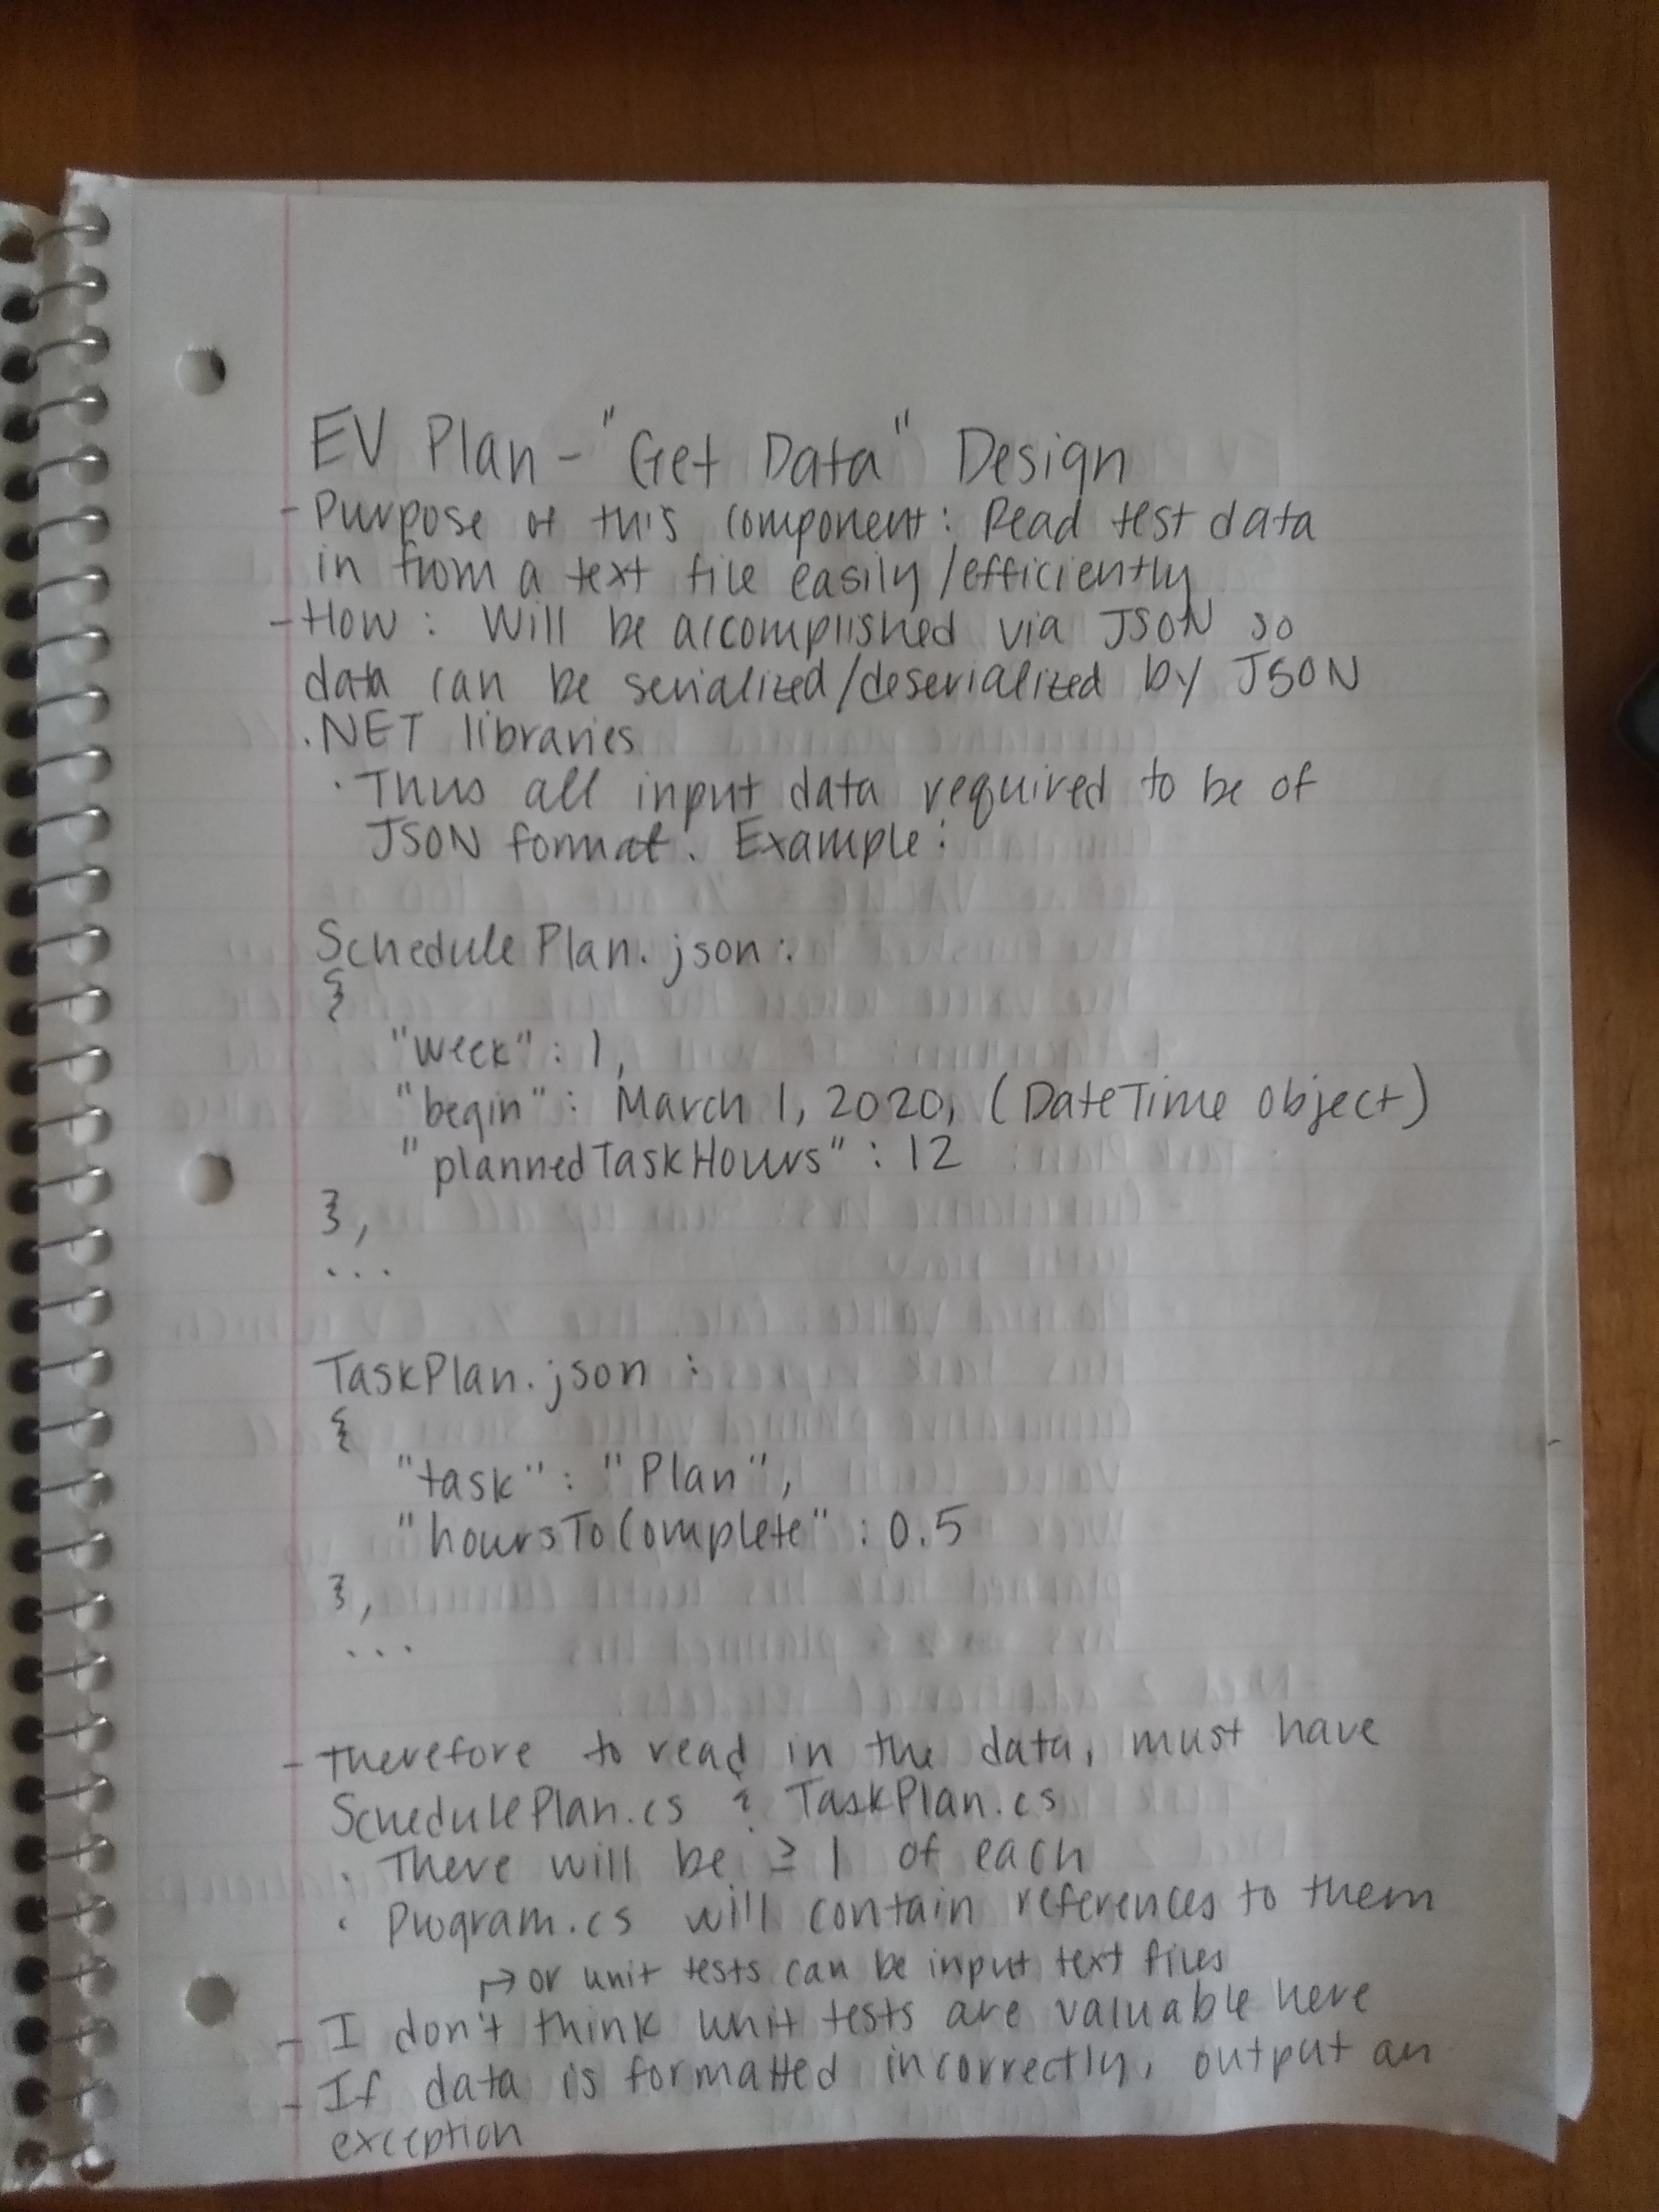 EV Plan - "Get Data" Design
- Purpose of this component: Read test data
in from a text file easily/efficiently
- How: Will be accomplished via JSON so
data can be serialized/deserialized by JSON
.NET libraries
· Thus all input data required to be of
JSON format. Example:
SchedulePlan.json:
{
"week": 1,
"begin": March 1, 2020, (DateTime object)
"plannedTaskHours": 12
},
...
TaskPlan.json:
{
"task": "Plan",
"hoursToComplete": 0.5
},
...
- therefore to read in the data, must have
SchedulePlan.cs & TaskPlan.cs
· There will be ≥ 1 of each
· Program.cs will contain references to them
↳ or unit tests can be input text files
- I don't think unit tests are valuable here
- If data is formatted incorrectly, output an
exception